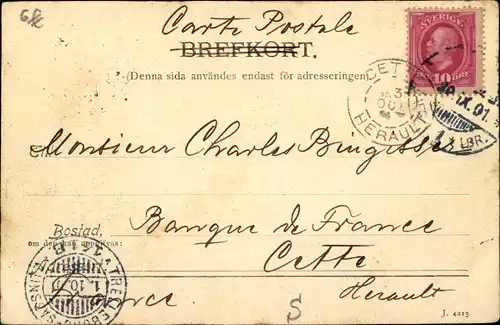 Carte Postale
BREFKORT.
(Denna sida användes endast för adresseringen)
SVERIGE
10 ÖRE
CETTE
3
OCT
HERAULT
30.IX.01.
LBR.
Till
Monsieur Charles
Banque de France
Bostad,
om den kan uppgifvas:
Cette
TRELLEBORG-SASSNITZ
1.10.
France
Herault
J. 4213